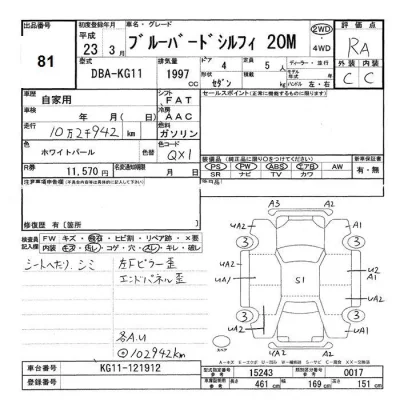 出品番号 81
初度登録年月 平成 23 3月
車名・グレード ブルーバードシルフィ 20M
2WD ・ 4WD
評価点 RA
型式 DBA-KG11
排気量 1997 CC
ドア 4
形状 セダン
定員 5 人
積載 kg
ディーラー・並行
モデル年式 年
ハンドル 左・右
外装 内装
C C
車歴 自家用
シフト FAT
セールスポイント(正規の機能に関するものに限ります)
車検 年 月
冷房 AAC
走行 10万2942km
燃料 ガソリン
色 ホワイトパール
色替
カラーNo. QX1
R券 11,570 円
名義変更期限 月 日
装備品(純正品に限り○をつけてください)
PS PW ABS エアB AW
SR ナビ TV カワ
新車保証書 有・無
修復歴 有[箇所 ]
検査員記入欄
FW キズ・飛石・ヒビ割・リペア跡・×要
内装 キズ・汚レ・コゲ・穴・スレ・キレ・破レ
シートへたり、シミ
左Fピラー歪
エンドパネル歪
各A.U
⊙102942km
A3 A2
UA2 3 3 A1
UA1 S1 U2 A1
A2
UA2 3 3 UA1
UA2 A2
スペア
A-キズ
車台番号 KG11-121912
登録番号
型式指定番号 15243
類別区分番号 0017
長さ 461 cm
幅 169 cm
高さ 151 cm